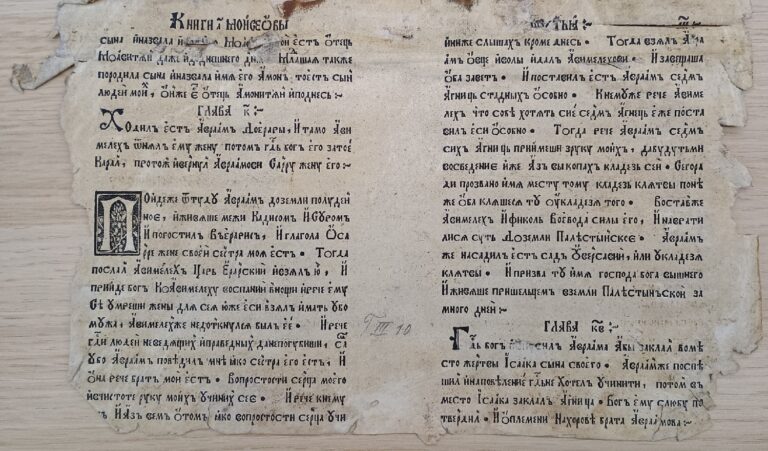 Книги а҃ Мойсѣовы
сына и назвала
Моавитян даже до днешнего дня Младшая також
породила сына и назвала имя его Амон то есть сын
людеи моих, он же ест отець Амонитян и поднесь :~
ГЛАВА К҃ :~
Ходил есть Авраам до Ерары, и тамо Ави
мелех отнял ему жену потом гдь бог его за то
карал, про тож и вернул Авраамови Сарру жену его :~
Пойдеже оттуду Авраам до земли полуден
ное, и живяше межи Кадисом и Суром
и погостил в Ерарех, и глагола о Са
рре жене своей сестра моя есть • Тогда
послал Авимелех царь Ерарский и взял ю, и
прийде бог ко Авимелеху во спании в нощи и рече ему
се умреши жены для сея юже еси взял, имать убо
мужа, Авимелех же не доткнулся был ее • И рече
гди людей неведящих и праведных да не погубиши, са
убо Авраам поведил мне яко сестра его есть, и
она рече брат мой есть • В простости серца моего
и в чистоте руку моих учиних сее • И рече к нему
И яз вем о том яко в простости серца учи
ТІІІ 10
тыи :~
и ни же слышах кроме днесь • Тогда взял Авра
ам овце и волы и дал Авимелехови • И завещаша
оба завет • И поставил есть Авраам седм
Агниць стадных особно • К нему же рече Авиме
лех что собе хотять сие седм Агнець еже поста
вил еси особно • Тогда рече Авраам седм
сих Агниць приймеши з руку моих, да будуть ми
во сведение иже яз выкопах кладезь сей • Сего ра
ди прозвано имя месту тому кладезь клятвы поне
же оба кляшеся ту у кладезя того • Востав же
Авимелех и Фикол воевода силы его, и навратили
лися суть до земли Палестыньское • Авраам
же насадил есть сад у Версавии, или у кладезя
клятвы • И призва ту имя господа бога вышнего
и живяше пришельцем в земли Палестыньской за
много дней :~
ГЛАВА КВ҃ :~
Гдь бог Авраама абы заклал во ме
сто жертвы Ісаака сына своего • Авраам же поспе
шил и наповеление гдне хотел учинити, потом въ
место Ісаака заклал Агница • Бог ему слюбу по
твердил • И о племени Нахорове брата Авраамова :~